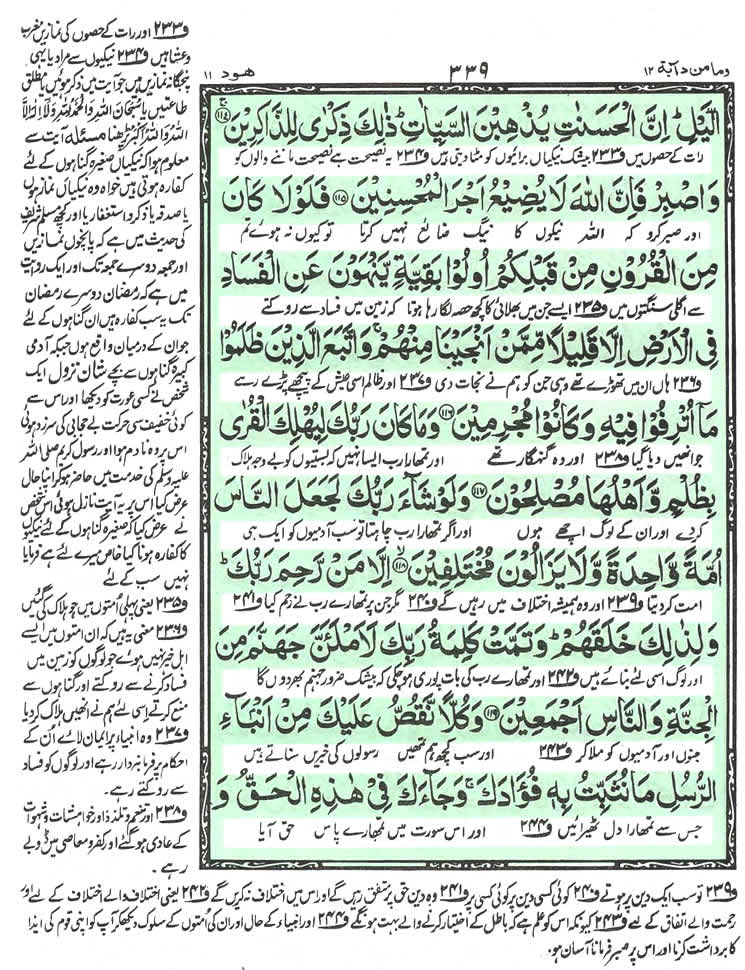 وما من دابة ١٢
٣٣٩
هود ١١
الَّيْلِ ؕ اِنَّ الْحَسَنٰتِ يُذْهِبْنَ السَّيِّاٰتِ ؕ ذٰلِكَ ذِكْرٰى لِلذّٰكِرِيْنَ ۚ ﴿۱۱۴﴾
رات کے حصوں میں ف٢٣٣ بیشک نیکیاں برائیوں کو مٹا دیتی ہیں ف٢٣٤ یہ نصیحت ہے نصیحت ماننے والوں کو
وَاصْبِرْ فَاِنَّ اللّٰهَ لَا يُضِيْعُ اَجْرَ الْمُحْسِنِيْنَ ﴿۱۱۵﴾ فَلَوْلَا كَانَ
اور صبر کرو کہ اللہ نیکوں کا نیگ ضائع نہیں کرتا تو کیوں نہ ہوئے تم
مِنَ الْقُرُوْنِ مِنْ قَبْلِكُمْ اُولُوْا بَقِيَّةٍ يَّنْهَوْنَ عَنِ الْفَسَادِ
سے اگلی سنگتوں میں ف٢٣٥ ایسے جن میں بھلائی کا کچھ حصہ لگا رہا ہوتا کہ زمین میں فساد سے روکتے
فِى الْاَرْضِ اِلَّا قَلِيْلًا مِّمَّنْ اَنْجَيْنَا مِنْهُمْ ۚ وَاتَّبَعَ الَّذِيْنَ ظَلَمُوْا
ف٢٣٦ ہاں ان میں تھوڑے تھے وہی جن کو ہم نے نجات دی ف٢٣٧ اور ظالم اسی عیش کے پیچھے پڑے رہے
مَاۤ اُتْرِفُوْا فِيْهِ وَكَانُوْا مُجْرِمِيْنَ ﴿۱۱۶﴾ وَمَا كَانَ رَبُّكَ لِيُهْلِكَ الْقُرٰى
جو انھیں دیا گیا ف٢٣٨ اور وہ گنہگار تھے اور تمھارا رب ایسا نہیں کہ بستیوں کو بے وجہ ہلاک
بِظُلْمٍ وَّاَهْلُهَا مُصْلِحُوْنَ ﴿۱۱۷﴾ وَلَوْ شَآءَ رَبُّكَ لَجَعَلَ النَّاسَ
کردے اور ان کے لوگ اچھے ہوں اور اگر تمھارا رب چاہتا تو سب آدمیوں کو ایک ہی
اُمَّةً وَّاحِدَةً وَّلَا يَزَالُوْنَ مُخْتَلِفِيْنَ ۙ ﴿۱۱۸﴾ اِلَّا مَنْ رَّحِمَ رَبُّكَ ؕ
امت کردیتا ف٢٣٩ اور وہ ہمیشہ اختلاف میں رہیں گے ف٢٤٠ مگر جن پر تمھارے رب نے رحم کیا ف٢٤١
وَلِذٰلِكَ خَلَقَهُمْ ؕ وَتَمَّتْ كَلِمَةُ رَبِّكَ لَاَمْلَئَنَّ جَهَنَّمَ مِنَ
اور لوگ اسی لئے بنائے ہیں ف٢٤٢ اور تمھارے رب کی بات پوری ہو چکی کہ بیشک ضرور جہنم بھر دوں گا
الْجِنَّةِ وَالنَّاسِ اَجْمَعِيْنَ ﴿۱۱۹﴾ وَكُلًّا نَّقُصُّ عَلَيْكَ مِنْ اَنْۢبَآءِ
جنوں اور آدمیوں کو ملا کر ف٢٤٣ اور سب کچھ ہم تمھیں رسولوں کی خبریں سناتے ہیں
الرُّسُلِ مَا نُثَبِّتُ بِهٖ فُؤَادَكَ ۚ وَجَآءَكَ فِىْ هٰذِهِ الْحَقُّ وَ
جس سے تمھارا دل ٹھیرائیں ف٢٤٤ اور اس سورت میں تمھارے پاس حق آیا
ف٢٣٣ اور رات کے حصوں کی نمازیں مغرب
و عشا ہیں ف٢٣٤ نیکیوں سے مراد یا یہی
پنجگانہ نمازیں ہیں جو آیت میں ذکر ہوئیں یا مطلق
طاعتیں یا سُبْحَانَ اللهِ وَالْحَمْدُ لِلّٰهِ وَلَا اِلٰهَ اِلَّا
اللهُ وَاللهُ اَكْبَرُ پڑھنا مسئلہ آیت سے
معلوم ہوا کہ نیکیاں صغیرہ گناہوں کے لئے
کفارہ ہوتی ہیں خواہ وہ نیکیاں نماز ہوں
یا صدقہ یا ذکر و استغفار یا اور کچھ مسلم شریف
کی حدیث میں ہے کہ پانچوں نمازیں
اور جمعہ دوسرے جمعہ تک اور ایک روایت
میں ہے کہ رمضان دوسرے رمضان
تک یہ سب کفارہ ہیں ان گناہوں کے لئے
جو ان کے درمیان واقع ہوں جبکہ آدمی
کبیرہ گناہوں سے بچے شان نزول ایک
شخص نے کسی عورت کو دیکھا اور اس سے
کوئی خفیف سی حرکت بے حجابی کی سرزد ہوئی
اس پر وہ نادم ہوا اور رسول کریم صلی اللہ
علیہ وسلم کی خدمت میں حاضر ہو کر اپنا حال
عرض کیا اس پر یہ آیت نازل ہوئی اس شخص
نے عرض کیا کہ صغیرہ گناہوں کے لئے نیکیوں
کا کفارہ ہونا کیا خاص میرے لئے ہے فرمایا
نہیں سب کے لئے
ف٢٣٥ یعنی پہلی اُمتوں میں جو ہلاک کی گئیں
ف٢٣٦ معنی یہ ہیں کہ ان امتوں میں ایسے
اہل خیر نہیں ہوئے جو لوگوں کو زمین میں
فساد کرنے سے روکتے اور گناہوں سے
منع کرتے اسی لئے ہم نے انھیں ہلاک کردیا
ف٢٣٧ وہ انبیاء پر ایمان لائے اُن کے
احکام پر فرمانبردار رہے اور لوگوں کو فساد
سے روکتے رہے۔
ف٢٣٨ اور تنعم و تلذذ اور خواہشات و شہوات
کے عادی ہو گئے اور کفر و معاصی میں ڈوبے
رہے۔
ف٢٣٩ تو سب ایک دین پر ہوتے ف٢٤٠ کوئی کسی دین پر کوئی کسی پر ف٢٤١ وہ دین حق پر متفق رہیں گے اور اس میں اختلاف نہ کریں گے ف٢٤٢ یعنی اختلاف والے اختلاف کے لئے اور
رحمت والے اتفاق کے لیے ف٢٤٣ کیونکہ اس کو علم ہے کہ باطل کے اختیار کرنے والے بہت ہونگے ف٢٤٤ اور انبیاء کے حال اور ان کی اُمتوں کے سلوک دیکھ کر آپ کو اپنی قوم کی ایذا
کا برداشت کرنا اور اس پر صبر فرمانا آسان ہو۔